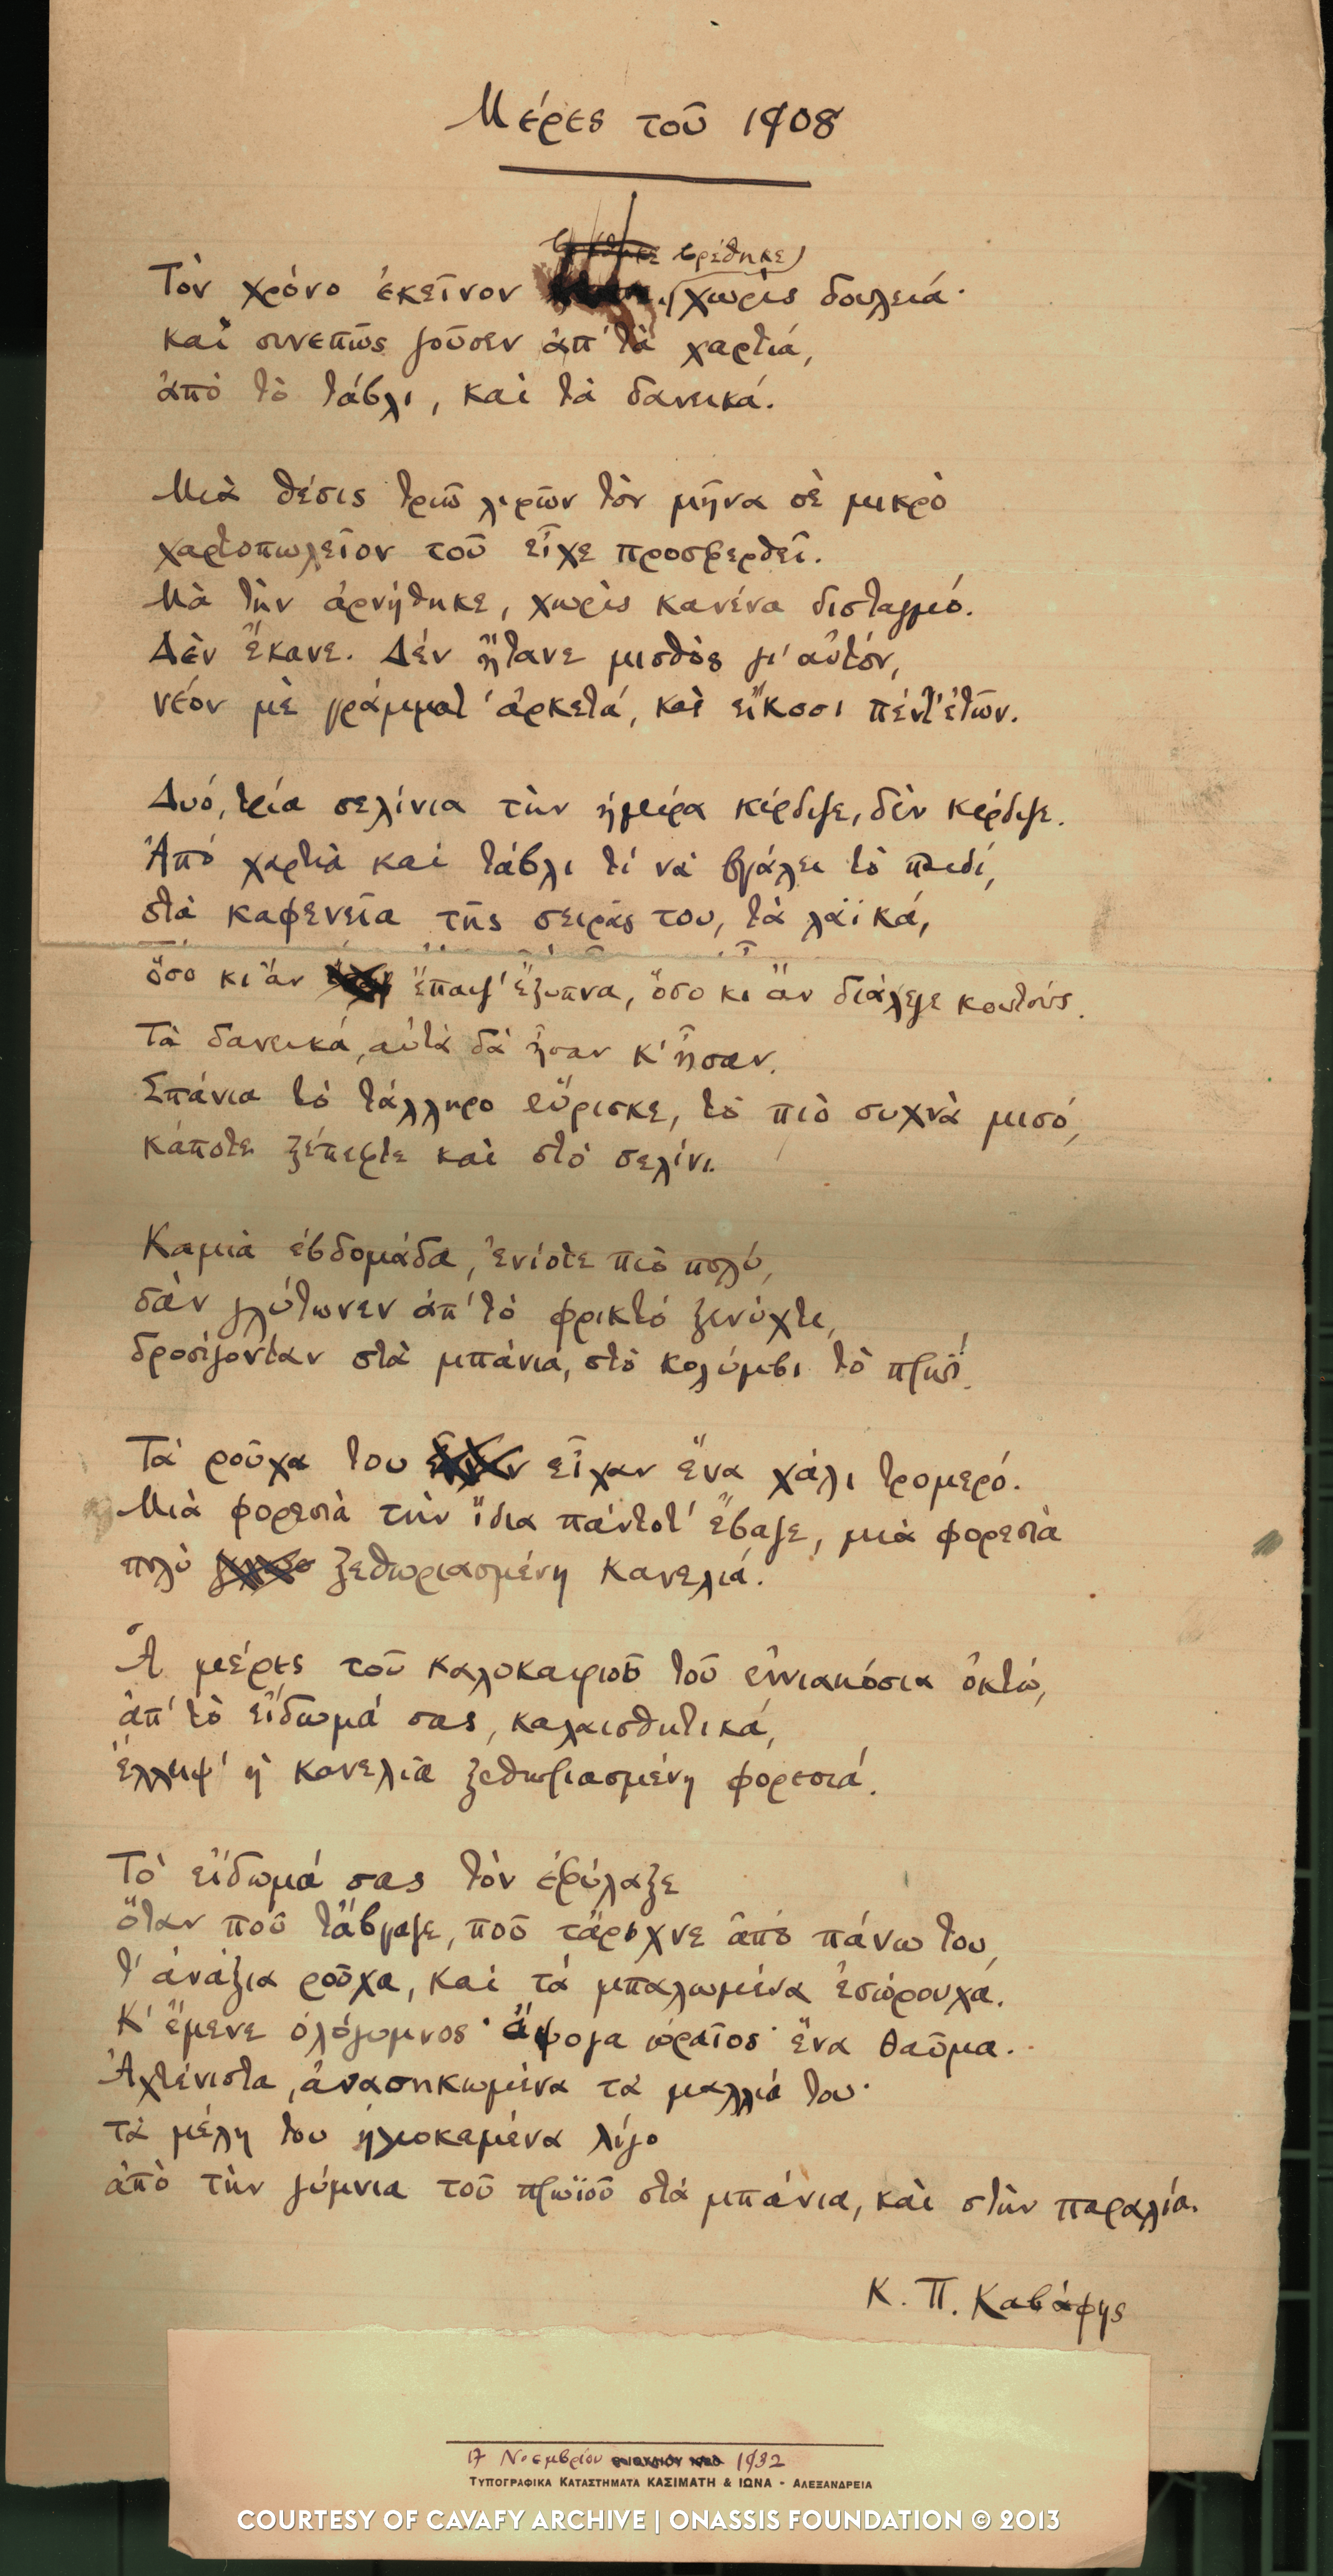 Μέρες τοῦ 1908
βρέθηκε
Τὸν χρόνο ἐκεῖνον χωρὶς δουλειά·
καὶ συνεπῶς ζοῦσεν ἀπ' τὰ χαρτιά,
ἀπὸ τὸ τάβλι, καὶ τὰ δανεικά.
Μιὰ θέσις τριῶ λιρῶν τὸν μῆνα σὲ μικρὸ
χαρτοπωλεῖον τοῦ εἶχε προσφερθεῖ.
Μὰ τὴν ἀρνήθηκε, χωρὶς κανένα δισταγμό.
Δὲν ἔκανε. Δὲν ἤτανε μισθὸς γι' αὐτόν,
νέον μὲ γράμματ' ἀρκετά, καὶ εἴκοσι πέντ' ἐτῶν.
Δυό, τρία σελίνια τὴν ἡμέρα κέρδιζε, δὲν κέρδιζε.
Ἀπὸ χαρτιὰ καὶ τάβλι τί νὰ βγάλει τὸ παιδί,
στὰ καφενεῖα τῆς σειρᾶς του, τὰ λαϊκά,
ὅσο κι ἂν ἔπαιζ' ἔξυπνα, ὅσο κι ἂν διάλεγε κουτούς.
Τὰ δανεικά, αὐτὰ δὰ ἦσαν κ' ἦσαν.
Σπάνια τὸ τάλληρο εὕρισκε, τὸ πιὸ συχνὰ μισό,
κάποτε ξέπεφτε καὶ στὸ σελίνι.
Καμιὰ ἑβδομάδα, ἐνίοτε πιὸ πολύ,
σὰν γλύτωνεν ἀπ' τὸ φρικτὸ ξενύχτι,
δροσίζονταν στὰ μπάνια, στὸ κολύμβι τὸ πρωΐ.
Τὰ ροῦχα του εἶχαν ἕνα χάλι τρομερό.
Μιὰ φορεσιὰ τὴν ἴδια πάντοτ' ἔβαζε, μιὰ φορεσιὰ
πολὺ ξεθωριασμένη κανελιά.
Ἄ μέρες τοῦ καλοκαιριοῦ τοῦ ἐννιακόσια ὀκτώ,
ἀπ' τὸ εἴδωμά σας, καλαισθητικά,
ἔλλειψ' ἡ κανελιὰ ξεθωριασμένη φορεσιά.
Τὸ εἴδωμά σας τὸν ἐφύλαξε
ὅταν ποὺ τἄβγαζε, ποὺ τἄρχνε ἀπὸ πάνω του,
τ' ἀνάξια ροῦχα, καὶ τὰ μπαλωμένα ἐσώρουχα.
Κ' ἔμενε ὁλόγυμνος· ἄψογα ὡραῖος· ἕνα θαῦμα.
Ἀχτένιστα, ἀνασηκωμένα τὰ μαλλιά του·
τὰ μέλη του ἡλιοκαμένα λίγο
ἀπὸ τὴν γύμνια τοῦ πρωϊοῦ στὰ μπάνια, καὶ στὴν παραλία.
Κ. Π. Καβάφης
17 Νοεμβρίου 1932
ΤΥΠΟΓΡΑΦΙΚΑ ΚΑΤΑΣΤΗΜΑΤΑ ΚΑΣΙΜΑΤΗ & ΙΩΝΑ - ΑΛΕΞΑΝΔΡΕΙΑ
COURTESY OF CAVAFY ARCHIVE | ONASSIS FOUNDATION © 2013